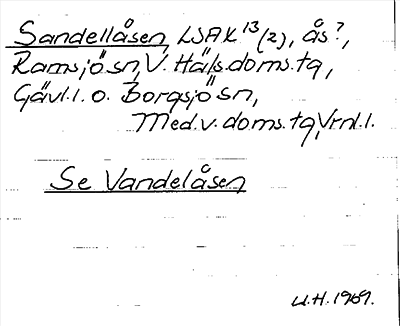 Sandellåsen, LSAK 13 (2), ås?,
Ramsjö sn, V. Häls. doms. tg,
Gävl. l. o. Borgsjö sn,
Med. v. doms. tg, Vrnl. l.
Se Vandelåsen
U.H. 1969.